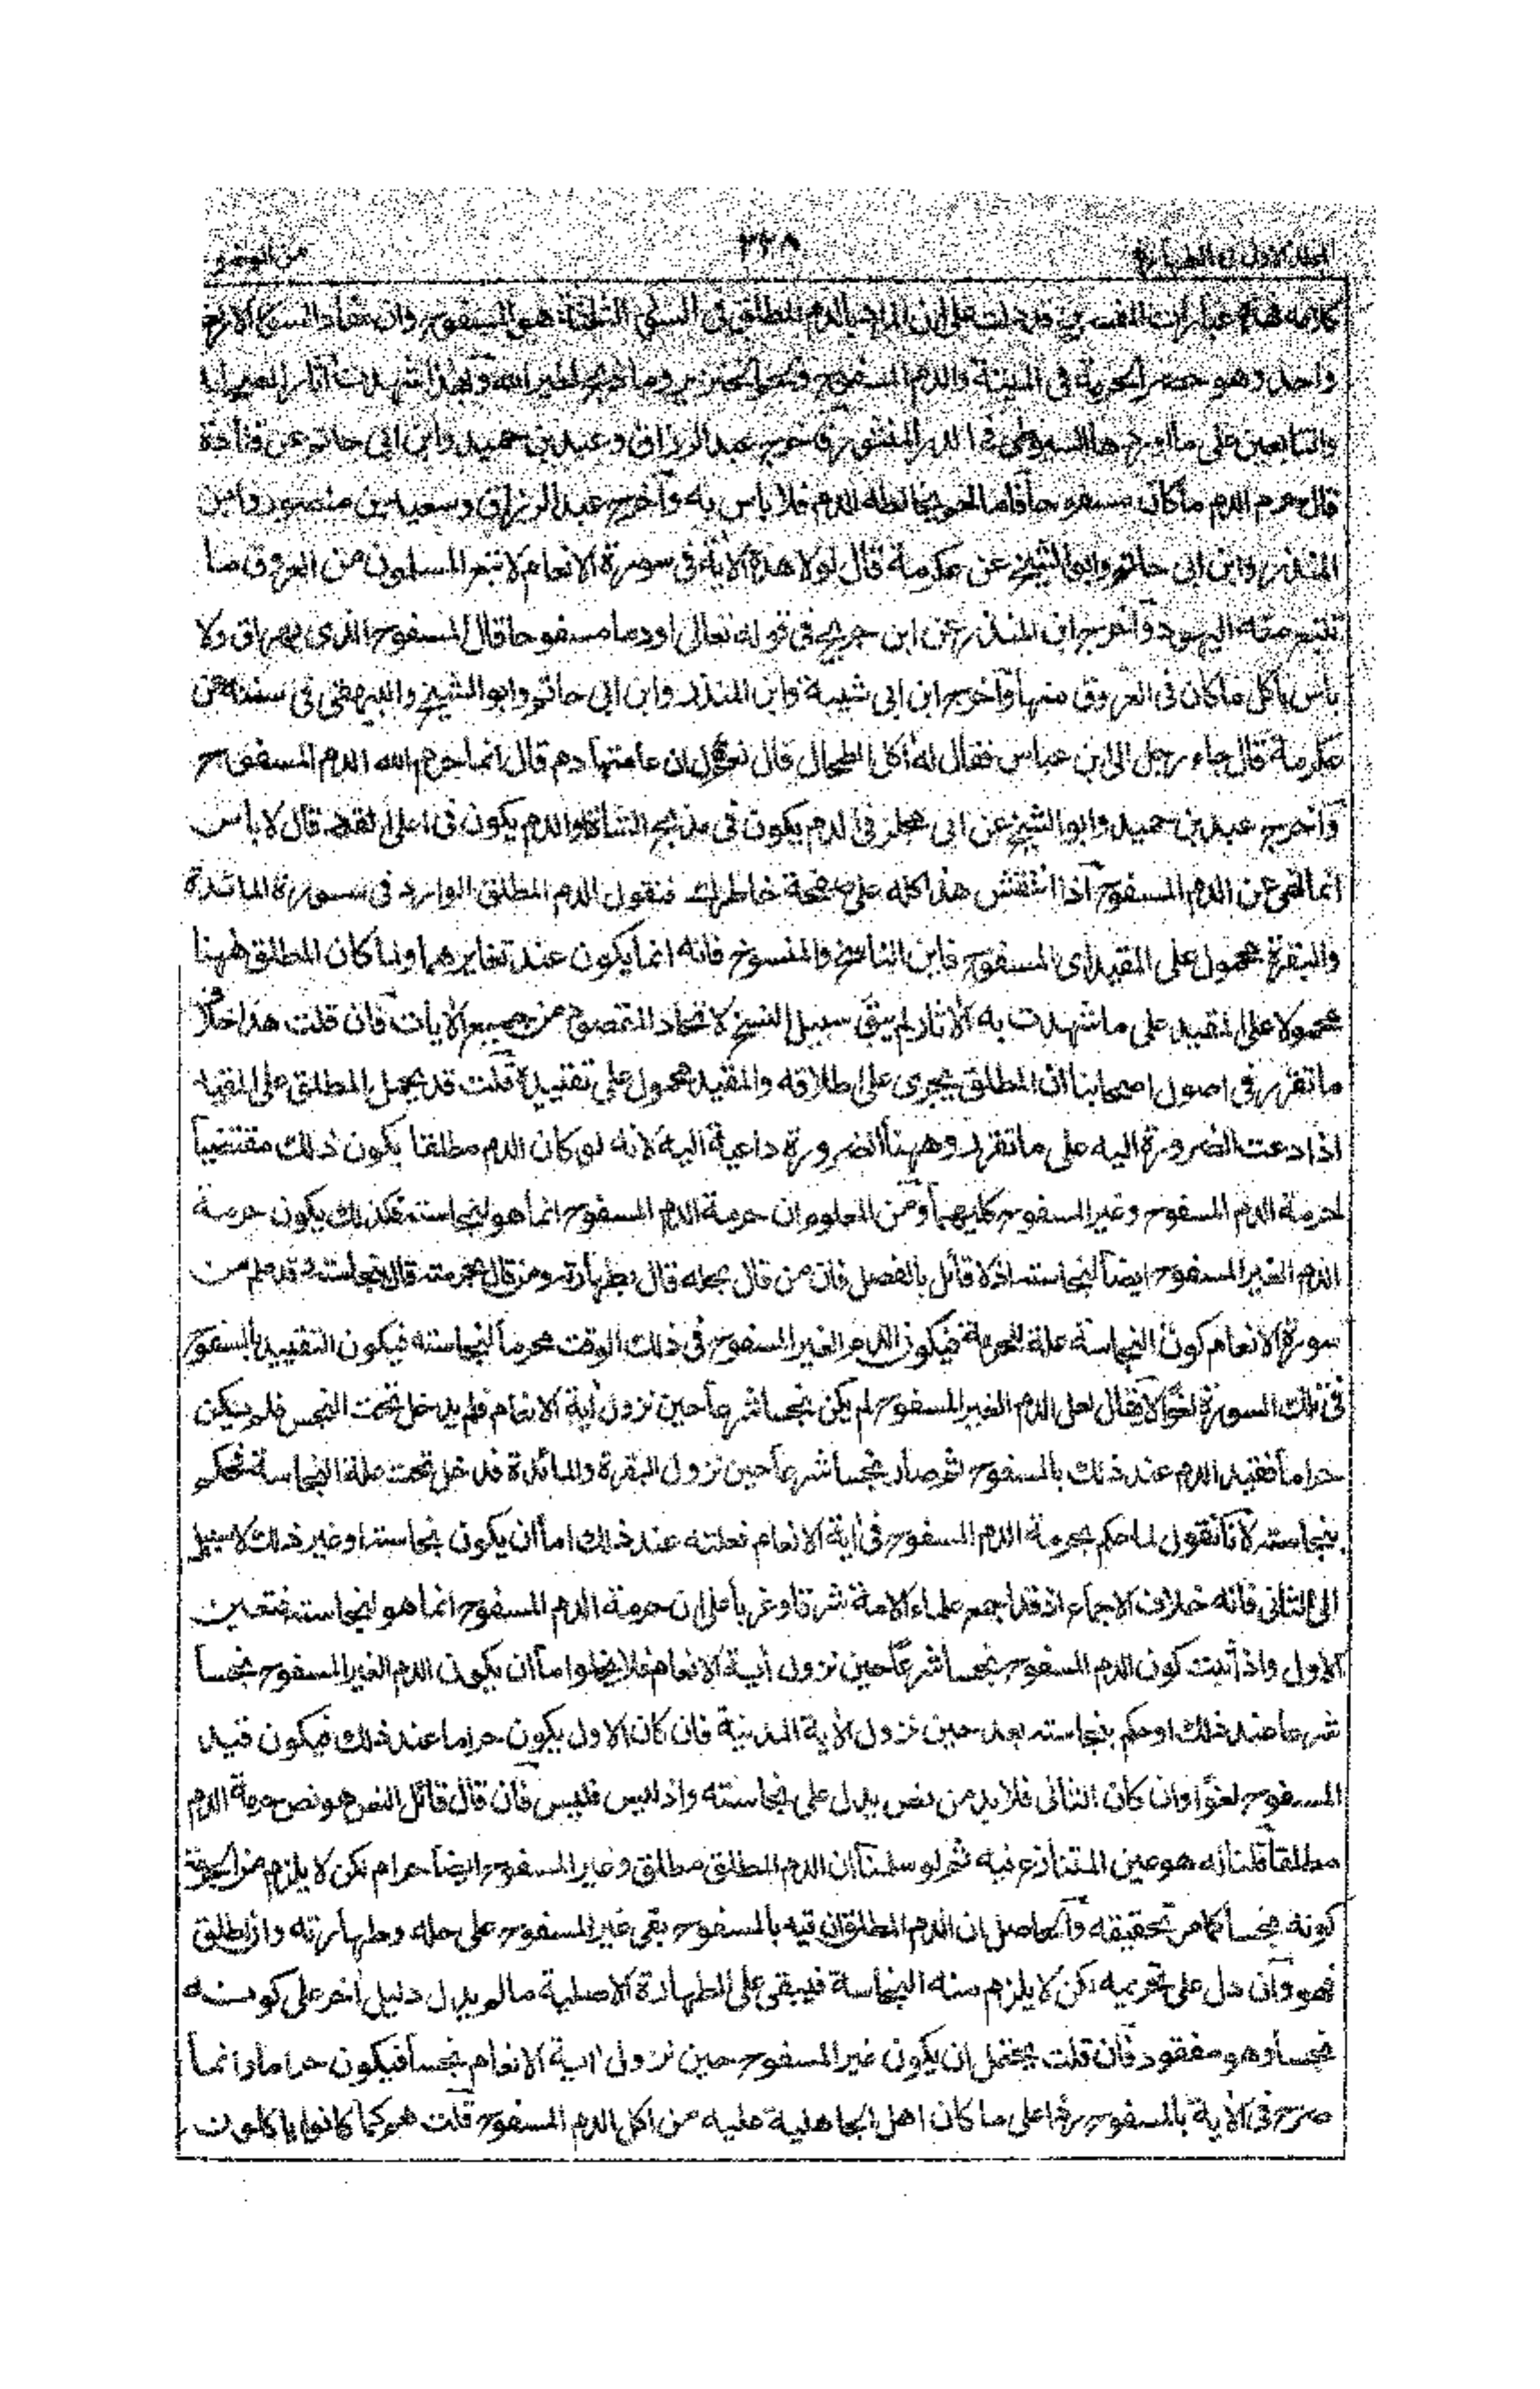 ٢٢٨
كلامه فهذه عبارات المفسرين قد دلت على ان المراد بالدم المطلق في السور الثلثة هو المسفوح وان مفاد السور الاربع
واحد وهو حصر الحرمة في الميتة والدم المسفوح ولحم الخنزير وما اهل لغير الله وبهذا شهدت آثار الصحابة
والتابعين على ما اوردها السيوطي في الدر المنثور فاخرج عبد الرزاق وعبد بن حميد وابن ابي حاتم عن قتادة
قال حرم الدم ما كان مسفوحا فاما لحم يخالطه الدم فلا باس به وأخرج عبد الرزاق وسعيد بن منصور وابن
المنذر وابن ابي حاتم وابو الشيخ عن عكرمة قال لولا هذه الآية في سورة الانعام لاتبع المسلمون من العروق ما
تتبع منه اليهود وأخرج ابن المنذر عن ابن جريج في قوله تعالى او دما مسفوحا قال المسفوح الذى يهراق ولا
باس باكل ما كان في العروق منها وأخرج ابن ابي شيبة وابن المنذر وابن ابي حاتم وابو الشيخ والبيهقي في سننه عن
عكرمة قال جاء رجل الى ابن عباس فقال له أكل الطحال قال نعم قال ان عامتها دم قال انما حرم الله الدم المسفوح
وأخرج عبد بن حميد وابو الشيخ عن ابي مجلز في الدم يكون في مذبح الشاة والدم يكون في اعلى القدر قال لا باس
انما نهى عن الدم المسفوح اذا انتقش هذا كله على صفحة خاطرك فنقول الدم المطلق الوارد في سورة المائدة
والبقرة محمول على المقيد اى المسفوح فاين الناسخ والمنسوخ فانه انما يكون عند تغايرهما ولما كان المطلق ههنا
محمولا على المقيد على ما شهدت به الآثار لم يبق سبيل النسخ لاتحاد المقصود من جميع الآيات فان قلت هذا خلاف
ما تقرر في اصول اصحابنا ان المطلق يجرى على اطلاقه والمقيد محمول على تقييده قلت قد يحمل المطلق على المقيد
اذا دعت الضرورة اليه على ما تقرر وههنا الضرورة داعية اليه لانه لو كان الدم مطلقا يكون ذلك مقتضيا
لحرمة الدم المسفوح وغير المسفوح كليهما ومن المعلوم ان حرمة الدم المسفوح انما هو لنجاسته فكذلك يكون حرمة
الدم الغير المسفوح ايضا لنجاسته اذ لا قائل بالفصل فان من قال بحله قال بطهارته ومن قال بحرمته قال بنجاسته وقد علم من
سورة الانعام كون النجاسة علة للحرمة فيكون الدم الغير المسفوح في ذلك الوقت محرما لنجاسته فيكون التقييد بالمسفوح
في تلك السورة لغوا لا يقال لعل الدم الغير المسفوح لم يكن نجسا شرعا حين نزول أية الانعام فلم يدخل تحت النجس فلم يكن
حراما فقيد الدم عند ذلك بالمسفوح ثم صار نجسا شرعا حين نزول البقرة والمائدة فدخل تحت علة النجاسة فحكم
بنجاسته لانا نقول لما حكم بحرمة الدم المسفوح في أية الانعام فعلته عند ذلك اما ان يكون نجاسته او غير ذلك لا سبيل
الى الثاني فانه خلاف الاجماع اذ قد اجمع علماء الامة شرقا وغربا على ان حرمة الدم المسفوح انما هو لنجاسته فتعين
الاول واذا ثبت كون الدم المسفوح نجسا شرعا حين نزول أية الانعام فلا يخلو اما ان يكون الدم الغير المسفوح نجسا
شرعا عند ذلك او حكم بنجاسته بعد حين نزول الآية المدنية فان كان الاول يكون حراما عند ذلك فيكون قيد
المسفوح لغوا وان كان الثاني فلا بد من نص يدل على نجاسته واذ ليس فليس فان قال قائل النص هو نص حرمة الدم
مطلقا قلنا انه هو عين المتنازع فيه ثم لو سلمنا ان الدم المطلق مطلق وغير المسفوح ايضا حرام لكن لا يلزم من الحرمة
كونه نجسا كما مر تحقيقه والحاصل ان الدم المطلق ان قيد بالمسفوح بقى غير المسفوح على حله وطهارته وان اطلق
فهو وان دل على تحريمه لكن لا يلزم منه النجاسة فيبقى على الطهارة الاصلية ما لم يدل دليل أخر على كونه
نجسا وهو مفقود فان قلت يحتمل ان يكون غير المسفوح حين نزول أية الانعام نجسا فيكون حراما وانما
صرح في الآية بالمسفوح ردا على ما كان اهل الجاهلية عليه من اكل الدم المسفوح قلت هو كما كانوا ياكلون